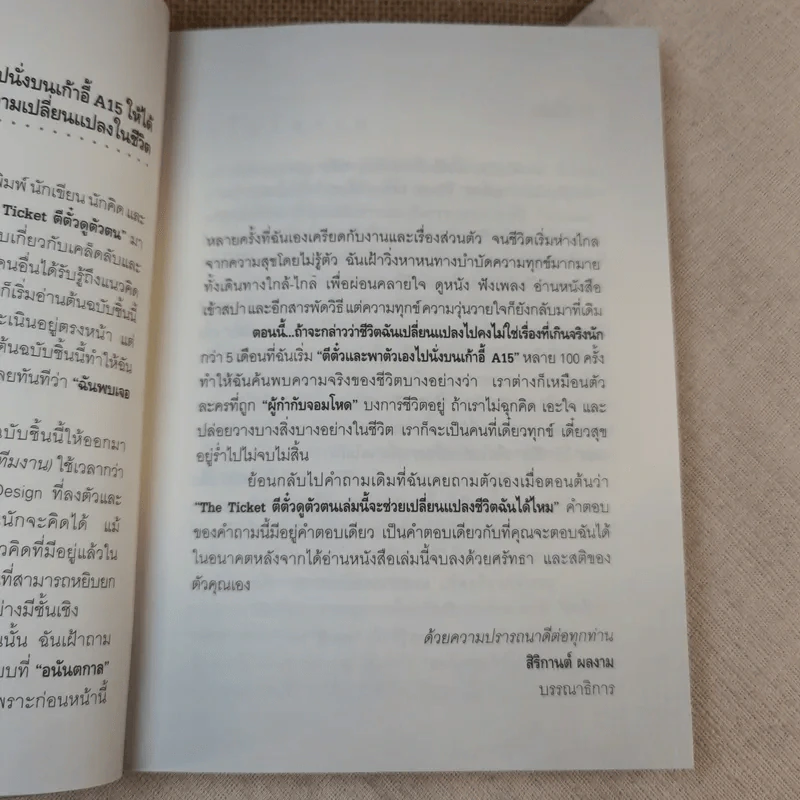 ปนั่งบนเก้าอี้ A15 ให้ได้
ามเปลี่ยนแปลงในชีวิต
พิมพ์ นักเขียน นักคิด และ
Ticket ตีตั๋วดูตัวตน” มา
บเกี่ยวกับเคล็ดลับและ
คนอื่นได้รับรู้ถึงแนวคิด
ก็เริ่มอ่านต้นฉบับชิ้นนี้
ะเนินอยู่ตรงหน้า แต่
ต้นฉบับชิ้นนี้ทำให้ฉัน
ลยทันทีว่า “ฉันพบเจอ
ฉบับชิ้นนี้ให้ออกมา
ทีมงาน) ใช้เวลากว่า
Design ที่ลงตัวและ
ะนักจะคิดได้ แม้
วคิดที่มีอยู่แล้วใน
นที่สามารถหยิบยก
ย่างมีชั้นเชิง
นนั้น ฉันเฝ้าถาม
ยบที่ “อนันตกาล”
พราะก่อนหน้านี้
หลายครั้งที่ฉันเองเครียดกับงานและเรื่องส่วนตัว จนชีวิตเริ่มห่างไกล
จากความสุขโดยไม่รู้ตัว ฉันเฝ้าวิ่งหาหนทางบำบัดความทุกข์มากมาย
ทั้งเดินทางใกล้-ไกล เพื่อผ่อนคลายใจ ดูหนัง ฟังเพลง อ่านหนังสือ
เข้าสปา และอีกสารพัดวิธี แต่ความทุกข์ ความวุ่นวายใจก็ยังกลับมาที่เดิม
ตอนนี้...ถ้าจะกล่าวว่าชีวิตฉันเปลี่ยนแปลงไปคงไม่ใช่เรื่องที่เกินจริงนัก
กว่า 5 เดือนที่ฉันเริ่ม “ตีตั๋วและพาตัวเองไปนั่งบนเก้าอี้ A15” หลาย 100 ครั้ง
ทำให้ฉันค้นพบความจริงของชีวิตบางอย่างว่า เราต่างก็เหมือนตัว
ละครที่ถูก “ผู้กำกับจอมโหด” บงการชีวิตอยู่ ถ้าเราไม่ฉุกคิด เอะใจ และ
ปล่อยวางบางสิ่งบางอย่างในชีวิต เราก็จะเป็นคนที่เดี๋ยวทุกข์ เดี๋ยวสุข
อยู่ร่ำไปไม่จบไม่สิ้น
ย้อนกลับไปคำถามเดิมที่ฉันเคยถามตัวเองเมื่อตอนต้นว่า
“The Ticket ตีตั๋วดูตัวตนเล่มนี้จะช่วยเปลี่ยนแปลงชีวิตฉันได้ไหม” คำตอบ
ของคำถามนี้มีอยู่คำตอบเดียว เป็นคำตอบเดียวกับที่คุณจะตอบฉันได้
ในอนาคตหลังจากได้อ่านหนังสือเล่มนี้จบลงด้วยศรัทธา และสติของ
ตัวคุณเอง
ด้วยความปรารถนาดีต่อทุกท่าน
สิริกานต์ ผลงาม
บรรณาธิการ